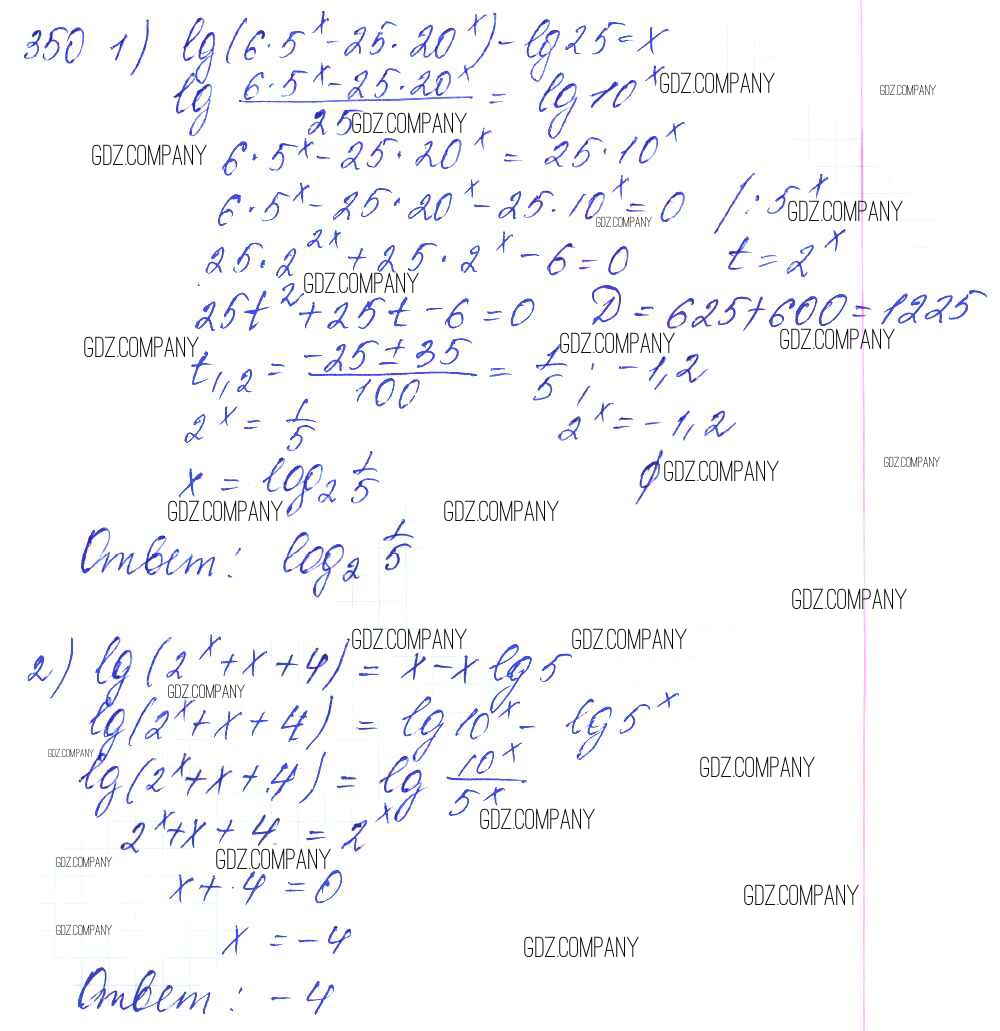 350 1) lg(6·5^x - 25·20^x) - lg25 = x
lg (6·5^x - 25·20^x)/25 = lg10^x GDZ.COMPANY GDZ.COMPANY
GDZ.COMPANY
GDZ.COMPANY 6·5^x - 25·20^x = 25·10^x
6·5^x - 25·20^x - 25·10^x = 0 /:5^x GDZ.COMPANY
GDZ.COMPANY
25·2^2x + 25·2^x - 6 = 0 t = 2^x
GDZ.COMPANY
25t^2 + 25t - 6 = 0 D = 625 + 600 = 1225
GDZ.COMPANY GDZ.COMPANY GDZ.COMPANY
t1,2 = (-25 ± 35)/100 = 1/5; -1,2
2^x = 1/5 2^x = -1,2
x = log2 1/5 ∅ GDZ.COMPANY GDZ.COMPANY
GDZ.COMPANY GDZ.COMPANY
Ответ: log2 1/5
GDZ.COMPANY
GDZ.COMPANY GDZ.COMPANY
2) lg(2^x + x + 4) = x - x lg5
GDZ.COMPANY
lg(2^x + x + 4) = lg10^x - lg5^x
GDZ.COMPANY
lg(2^x + x + 4) = lg 10^x/5^x GDZ.COMPANY
GDZ.COMPANY
2^x + x + 4 = 2^x
GDZ.COMPANY GDZ.COMPANY
x + 4 = 0 GDZ.COMPANY
GDZ.COMPANY x = -4 GDZ.COMPANY
Ответ: -4